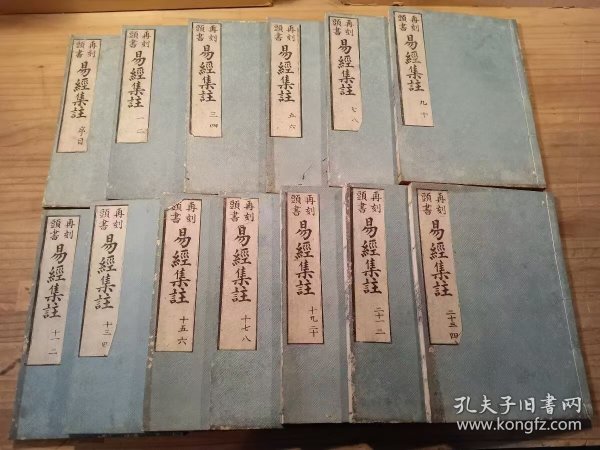 再刻
頭書
易經集註
序目
再刻
頭書
易經集註
一二
再刻
頭書
易經集註
三四
再刻
頭書
易經集註
五六
再刻
頭書
易經集註
七八
再刻
頭書
易經集註
九十
再刻
頭書
易經集註
十一二
再刻
頭書
易經集註
十三四
再刻
頭書
易經集註
十五六
再刻
頭書
易經集註
十七八
再刻
頭書
易經集註
十九二十
再刻
頭書
易經集註
二十一二
再刻
頭書
易經集註
二十三四
孔夫子旧书网
kongfz.com